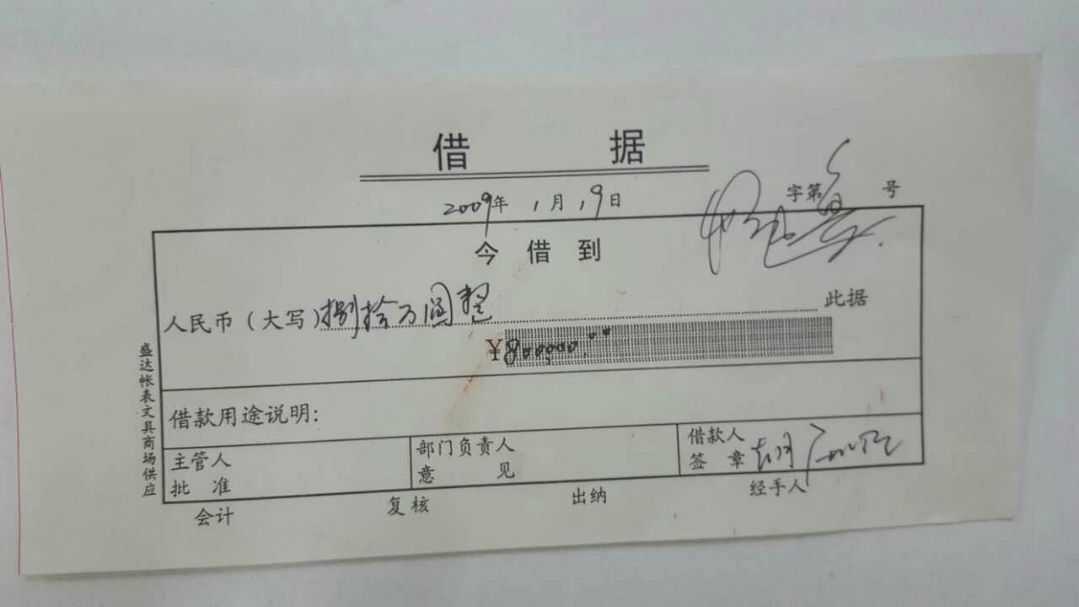 借 据
2009年 1月 19日
字第 号
今 借 到
人民币（大写）捌拾万圆整 此据
¥800000.00
借款用途说明：
主管人
批 准
部门负责人
意 见
借款人
签 章
会计 复核 出纳 经手人
盛达帐表文具商场供应